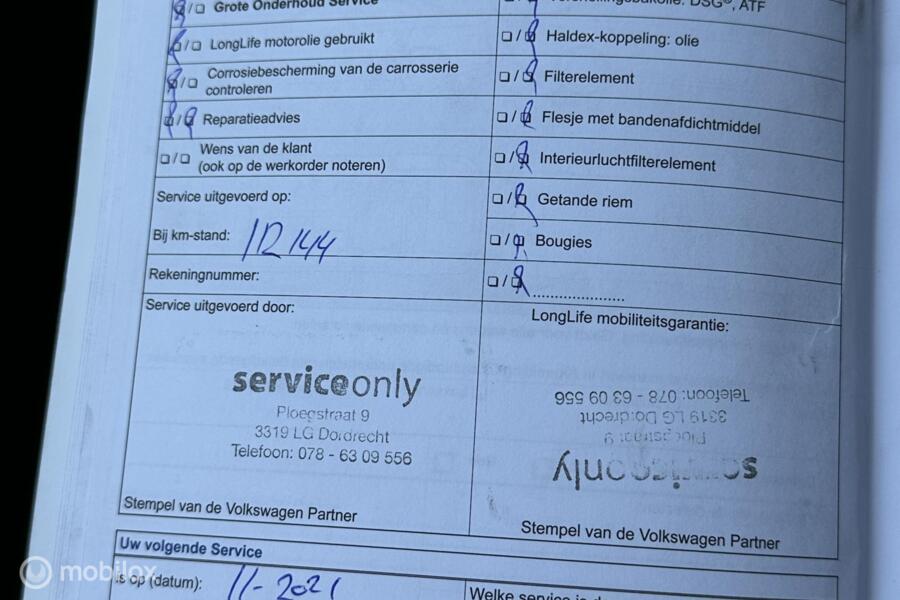 Grote Onderhoud Service
LongLife motorolie gebruikt
Corrosiebescherming van de carrosserie
controleren
Reparatieadvies
Wens van de klant
(ook op de werkorder noteren)
Service uitgevoerd op:
Bij km-stand: 112144
Rekeningnummer:
Service uitgevoerd door:
serviceonly
Ploegstraat 9
3319 LG Dordrecht
Telefoon: 078 - 63 09 556
Stempel van de Volkswagen Partner
DSG®, ATF
Haldex-koppeling: olie
Filterelement
Flesje met bandenafdichtmiddel
Interieurluchtfilterelement
Getande riem
Bougies
......................
LongLife mobiliteitsgarantie:
serviceonly
Ploegstraat 9
3319 LG Dordrecht
Telefoon: 078 - 63 09 556
Stempel van de Volkswagen Partner
Uw volgende Service
is op (datum): 11-2021
Welke service is
mobilox